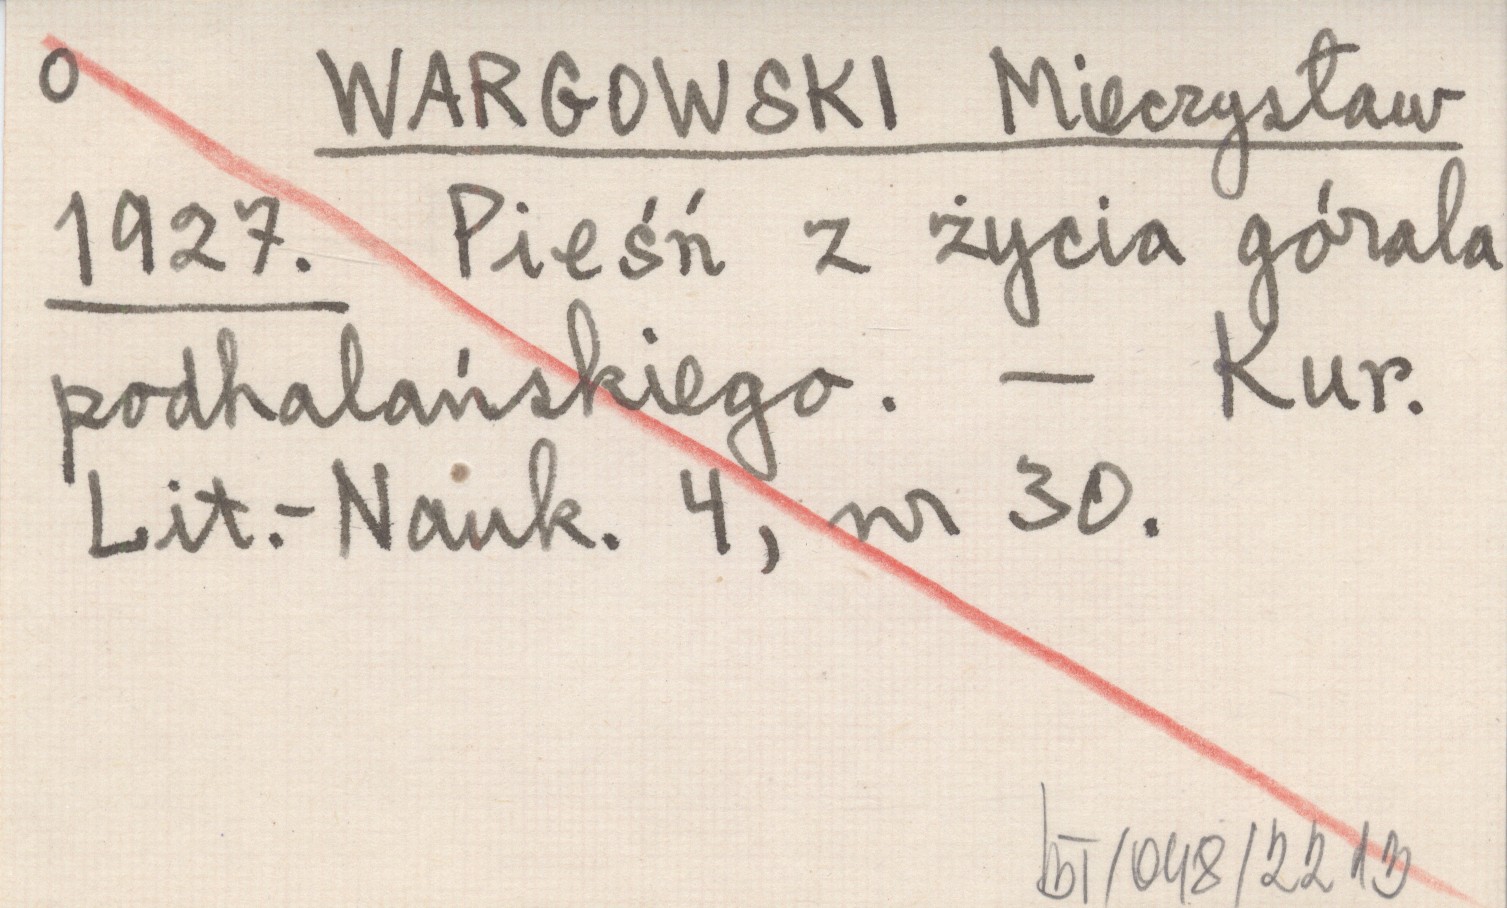 o WARGOWSKI Mieczysław
1927. Pieśń z życia górala
podhalańskiego. — Kur.
Lit.-Nauk. 4, nr 30.